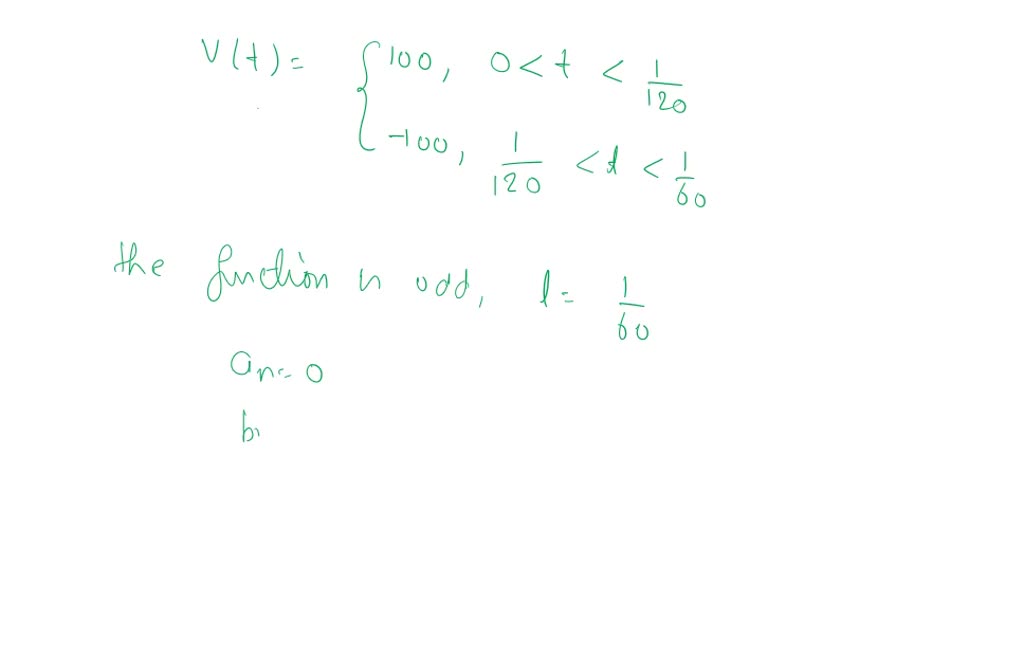 V(t) = { 100, 0 < t < 1/120
-100, 1/120 < t < 1/60
the function is odd, l = 1/60
an = 0
b